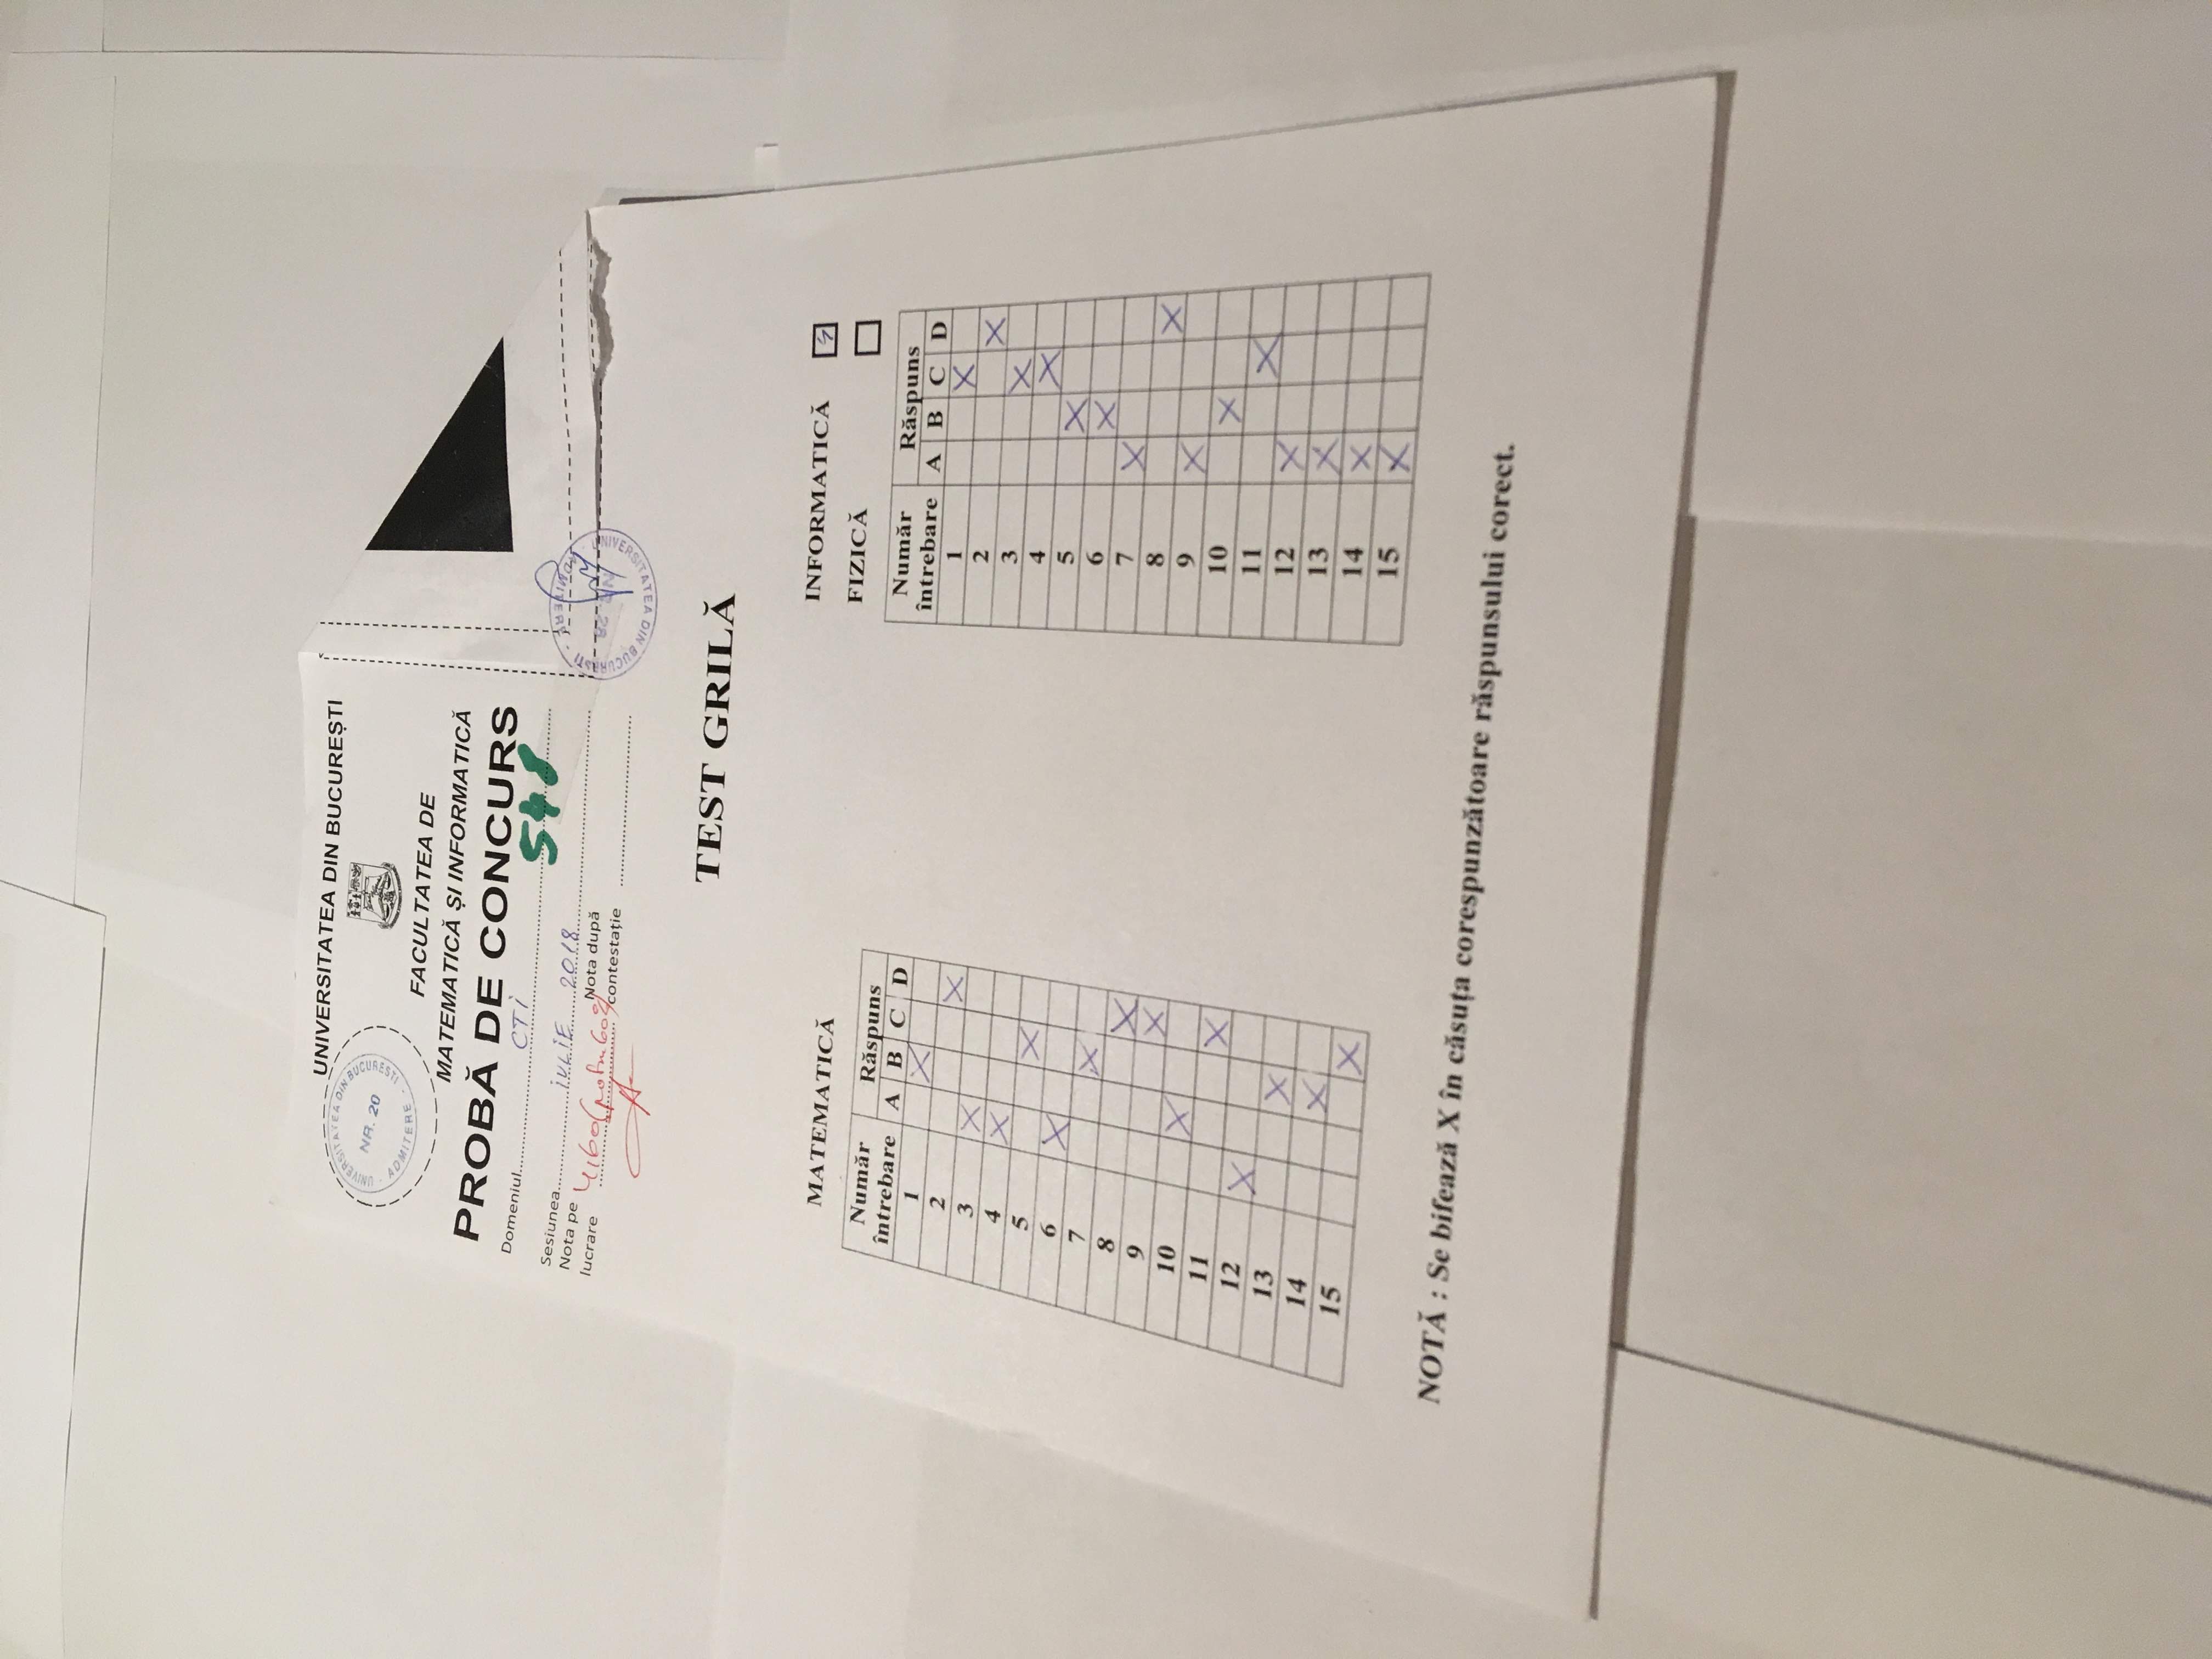 UNIVERSITATEA DIN BUCUREȘTI
UNIVERSITATEA DIN BUCUREȘTI
NR. 20
ADMITERE
FACULTATEA DE
MATEMATICĂ ȘI INFORMATICĂ
PROBĂ DE CONCURS
Domeniul CTI
548
Sesiunea IULIE 2018
Nota pe lucrare 4,60
Nota după contestație
UNIVERSITATEA DIN BUCUREȘTI
ADMITERE
TEST GRILĂ
MATEMATICĂ
Număr întrebare Răspuns
A B C D
1 X
2 X
3 X
4 X
5 X
6 X
7 X
8 X
9 X
10 X
11 X
12 X
13 X
14 X
15 X
INFORMATICĂ
FIZICĂ
Număr întrebare Răspuns
A B C D
1 X
2 X
3 X
4 X
5 X
6 X
7 X
8 X
9 X
10 X
11 X
12 X
13 X
14 X
15 X
NOTĂ : Se bifează X în căsuța corespunzătoare răspunsului corect.